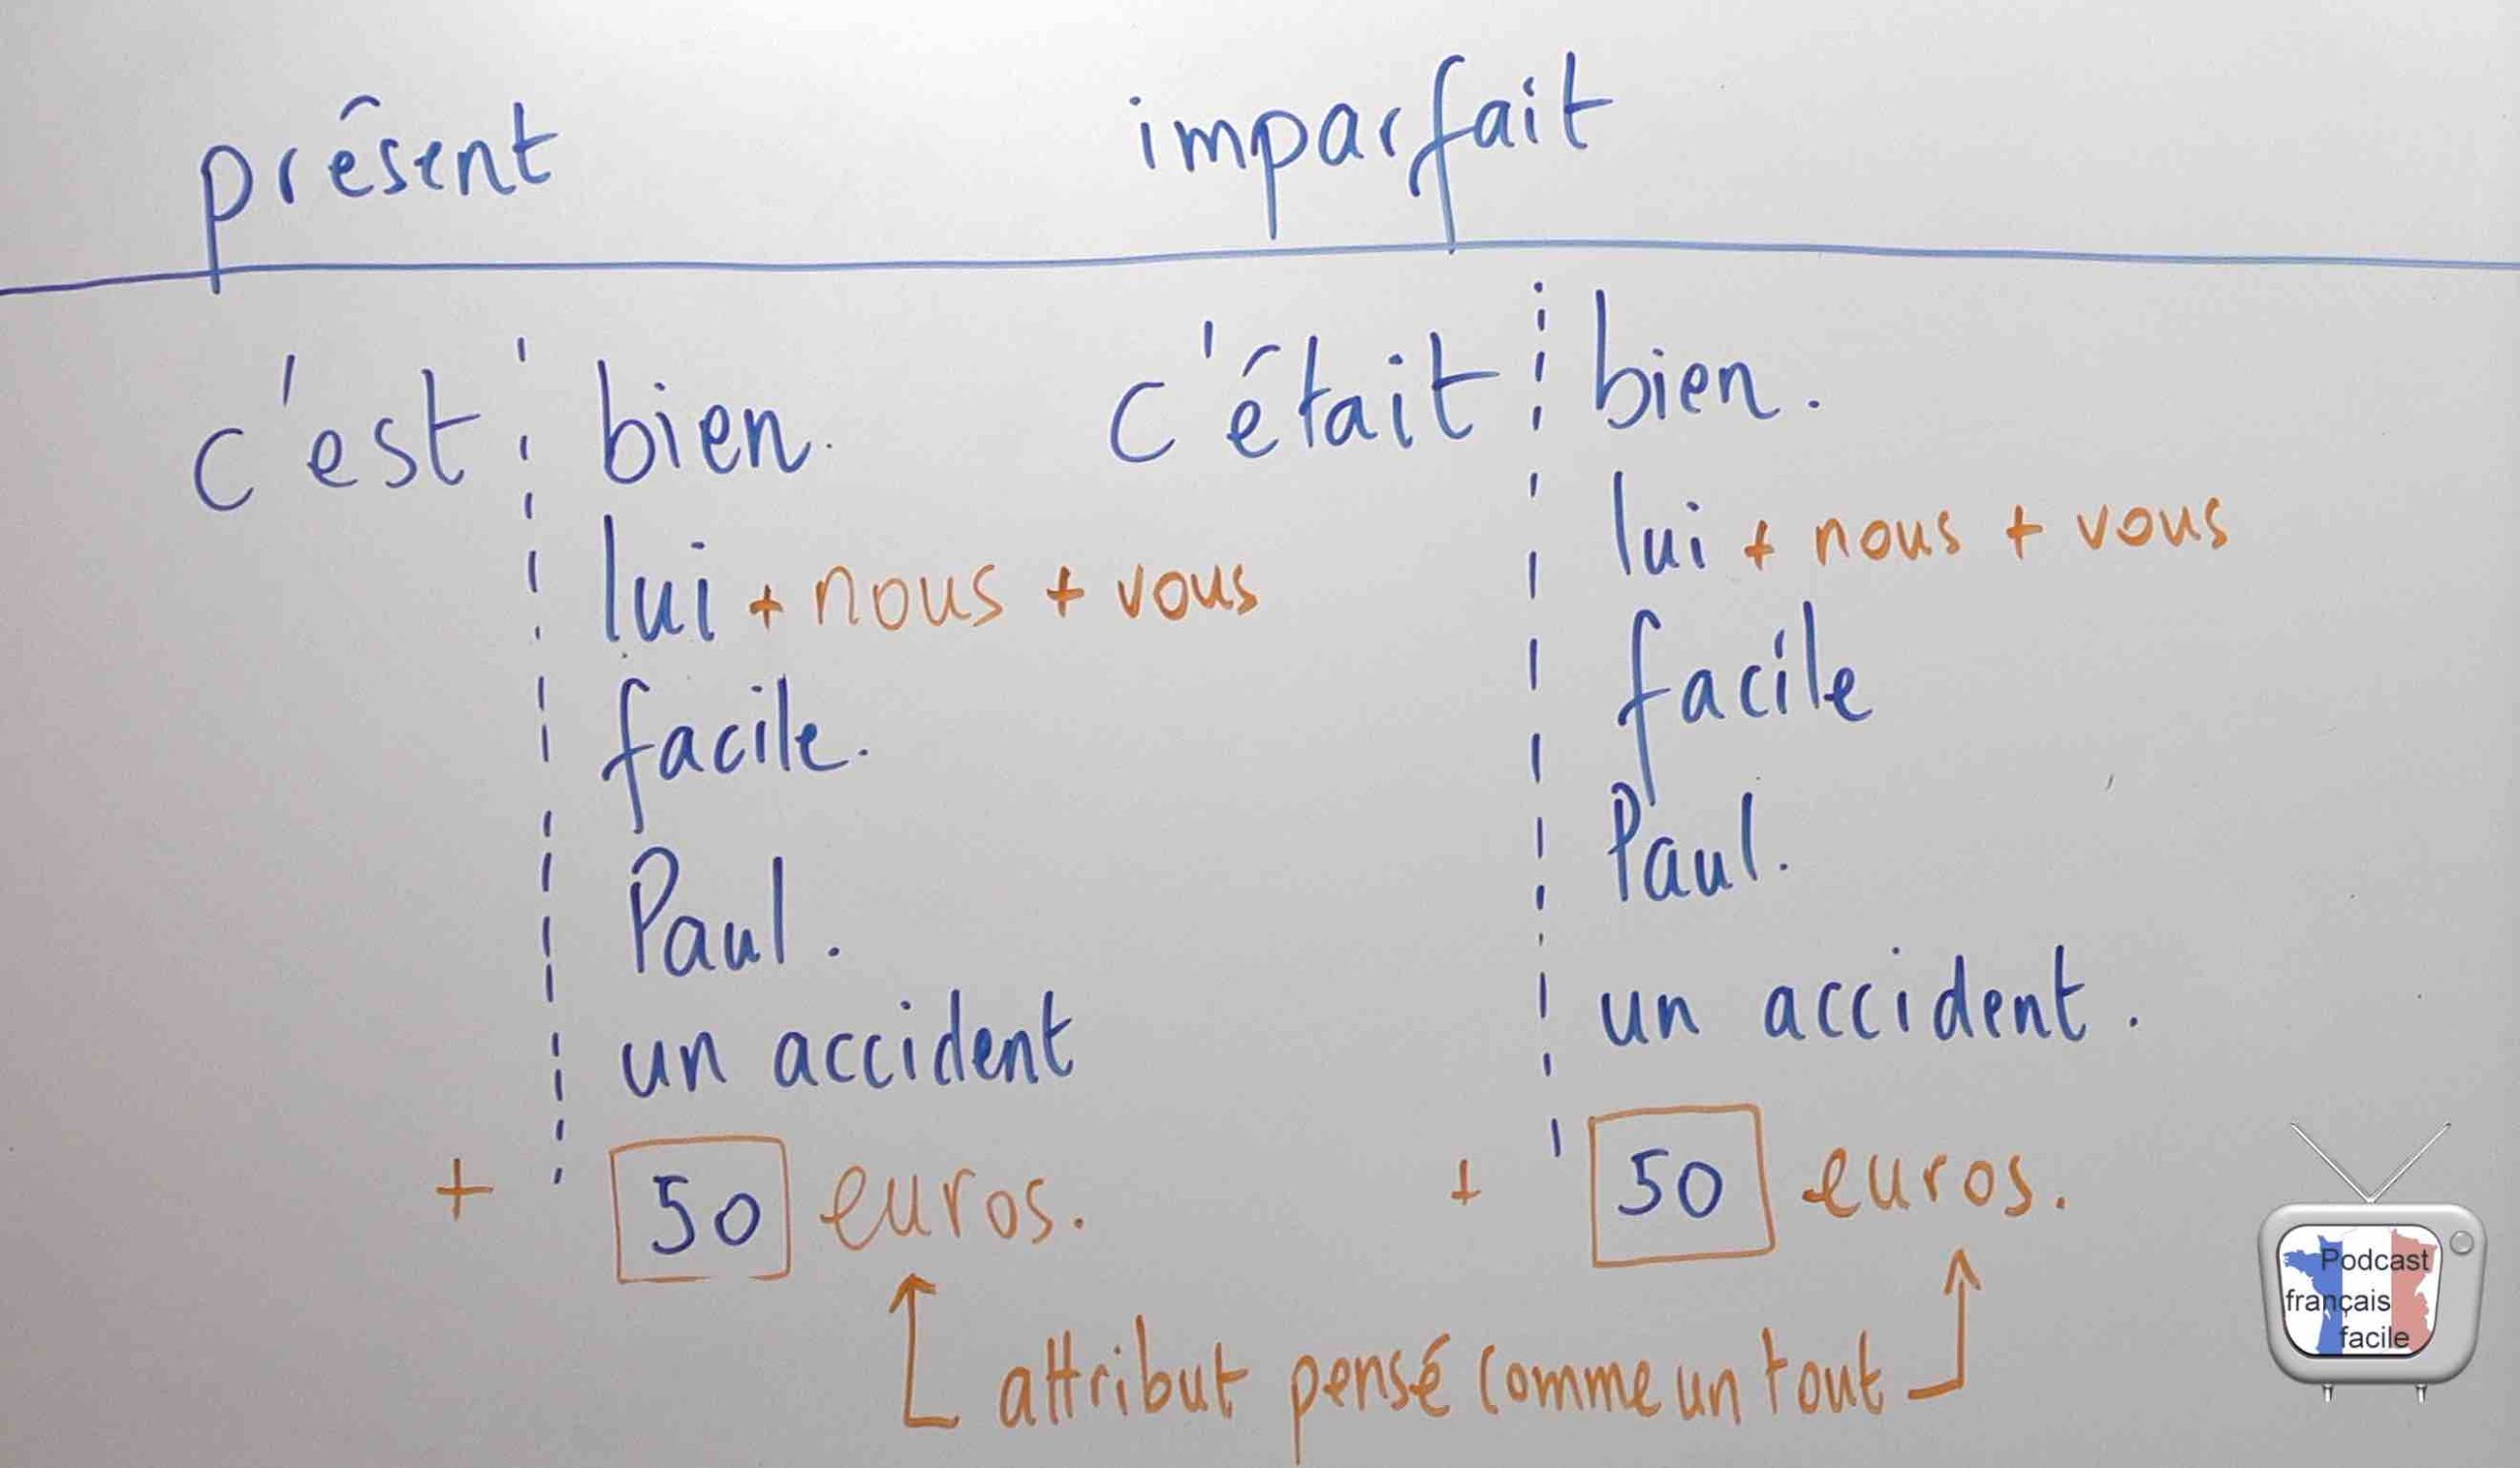 présent imparfait
c'est bien. c'était bien.
lui + nous + vous lui + nous + vous
facile. facile
Paul. Paul.
un accident un accident.
+ 50 euros. + 50 euros.
attribut pensé comme un tout
Podcast
français
facile